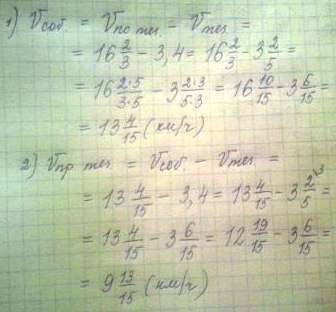 1) Vсоб = Vпо теч − Vтеч =
= 16 2/3 − 3,4 = 16 2/3 − 3 2/5 =
= 16 2·5/3·5 − 3 2·3/5·3 = 16 10/15 − 3 6/15 =
= 13 4/15 (км/ч)
2) Vпр теч = Vсоб. − Vтеч. =
= 13 4/15 − 3,4 = 13 4/15 − 3 2/5 =
= 13 4/15 − 3 6/15 = 12 19/15 − 3 6/15 =
= 9 13/15 (км/ч)